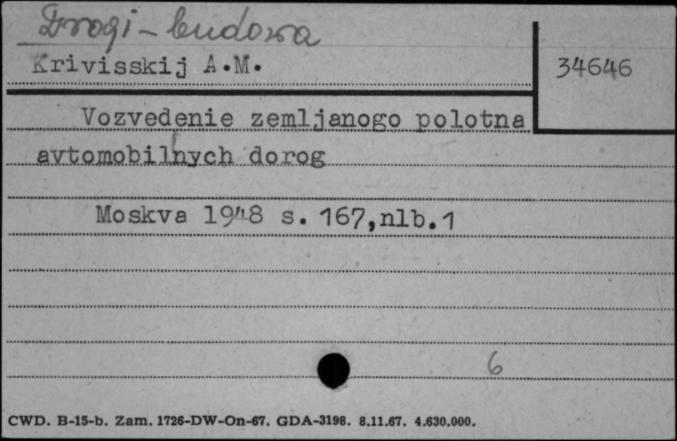 Drogi - budowa
Krivisskij A.M.
34646
Vozvedenie zemljanogo polotna
avtomobil'nych dorog
Moskva 1948 s. 167, nlb. 1
6
CWD. B-15-b. Zam. 1726-DW-On-67. GDA-3198. 8.11.67. 4.630.000.